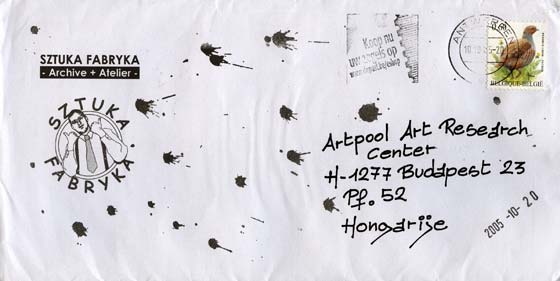 SZTUKA FABRYKA
- Archive + Atelier -
SZTUKA
FABRYKA
Koop nu
op
ANTWERPEN
BELGIQUE-BELGIË
Artpool Art Research
Center
H-1277 Budapest 23
Pf. 52
Hongarije
2005-10-20